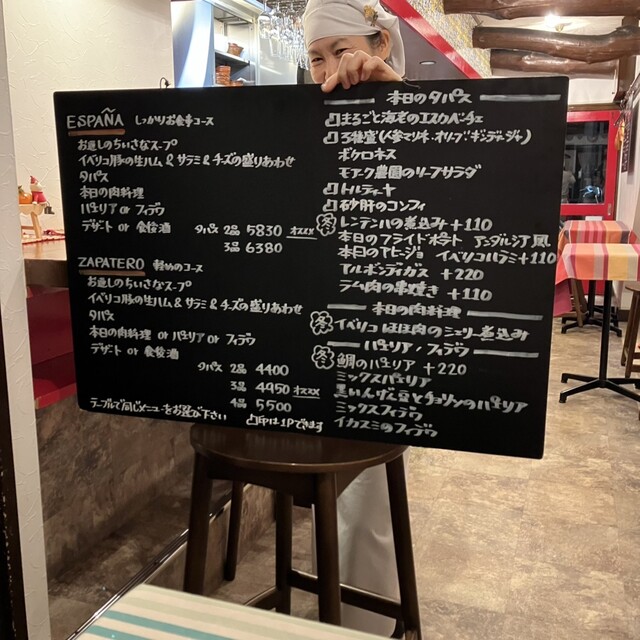 ESPAÑA しっかりお食事コース
お通しのちいさなスープ
イベリコ豚の生ハム & サラミ & チーズの盛りあわせ
タパス
本日の肉料理
パエリア or フィデウ
デザート or 食後酒
タパス 2品 5830 オススメ
3品 6380
ZAPATERO 軽めのコース
お通しのちいさなスープ
イベリコ豚の生ハム & サラミ & チーズの盛りあわせ
タパス
本日の肉料理 or パエリア or フィデウ
デザート or 食後酒
タパス 2品 4400
3品 4950 オススメ
4品 5500
テーブルで同じメニューをお選び下さい
凸印は1Pできます
本日のタパス
凸まるごと海老のエスカベーチェ
凸3種盛(人参マリネ・オリーブ・ギンディージャ)
ボケロネス
モアーク農園のリーフサラダ
凸トルティーヤ
凸砂肝のコンフィ
冬 レンテハの煮込み +110
本日のフライドポテト アンダルシア風
本日のアヒージョ イベリコハラミ+110
アルボンディガス +220
ラム肉の串焼き +110
本日の肉料理
冬 イベリコほほ肉のシェリー煮込み
パエリア・フィデウ
冬 鯛のパエリア +220
ミックスパエリア
黒いんげん豆とチョリソのパエリア
ミックスフィデウ
イカスミのフィデウ